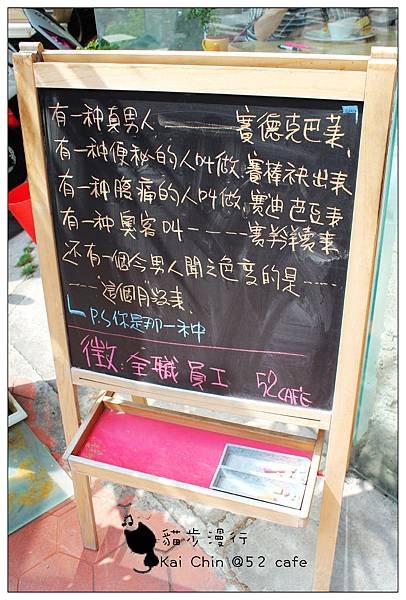 有一种真男人———賽德克巴萊、
有一种便秘的人叫做、賽棒袂出來
有一种腹痛的人叫做、賽油芭豆來
有一种奧客叫-----賽羚羚來
还有一個令男人聞之色變的是-----
-----這個月沒來、
P.S 你是那一种
徵:全職員工 52 CAFE
貓步漫行
Kai Chin @52 cafe